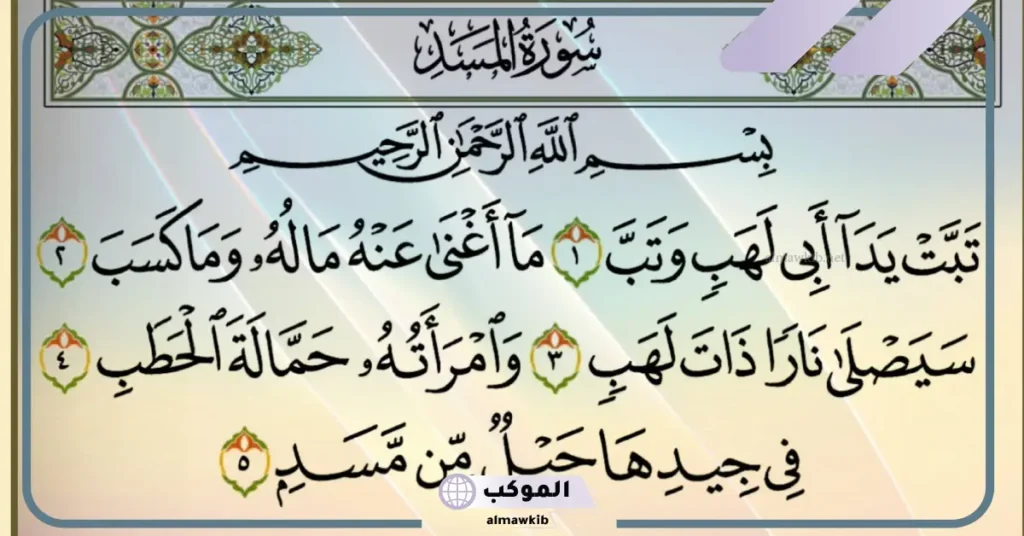 سُورَةُ المَسَدِ
بِسْمِ ٱللَّهِ ٱلرَّحْمَٰنِ ٱلرَّحِيمِ
تَبَّتْ يَدَآ أَبِى لَهَبٍ وَتَبَّ ١ مَآ أَغْنَىٰ عَنْهُ مَالُهُۥ وَمَا كَسَبَ ٢
almawkib.net
سَيَصْلَىٰ نَارًا ذَاتَ لَهَبٍ ٣ وَٱمْرَأَتُهُۥ حَمَّالَةَ ٱلْحَطَبِ ٤
فِى جِيدِهَا حَبْلٌ مِّن مَّسَدٍ ٥
الموكب
almawkib